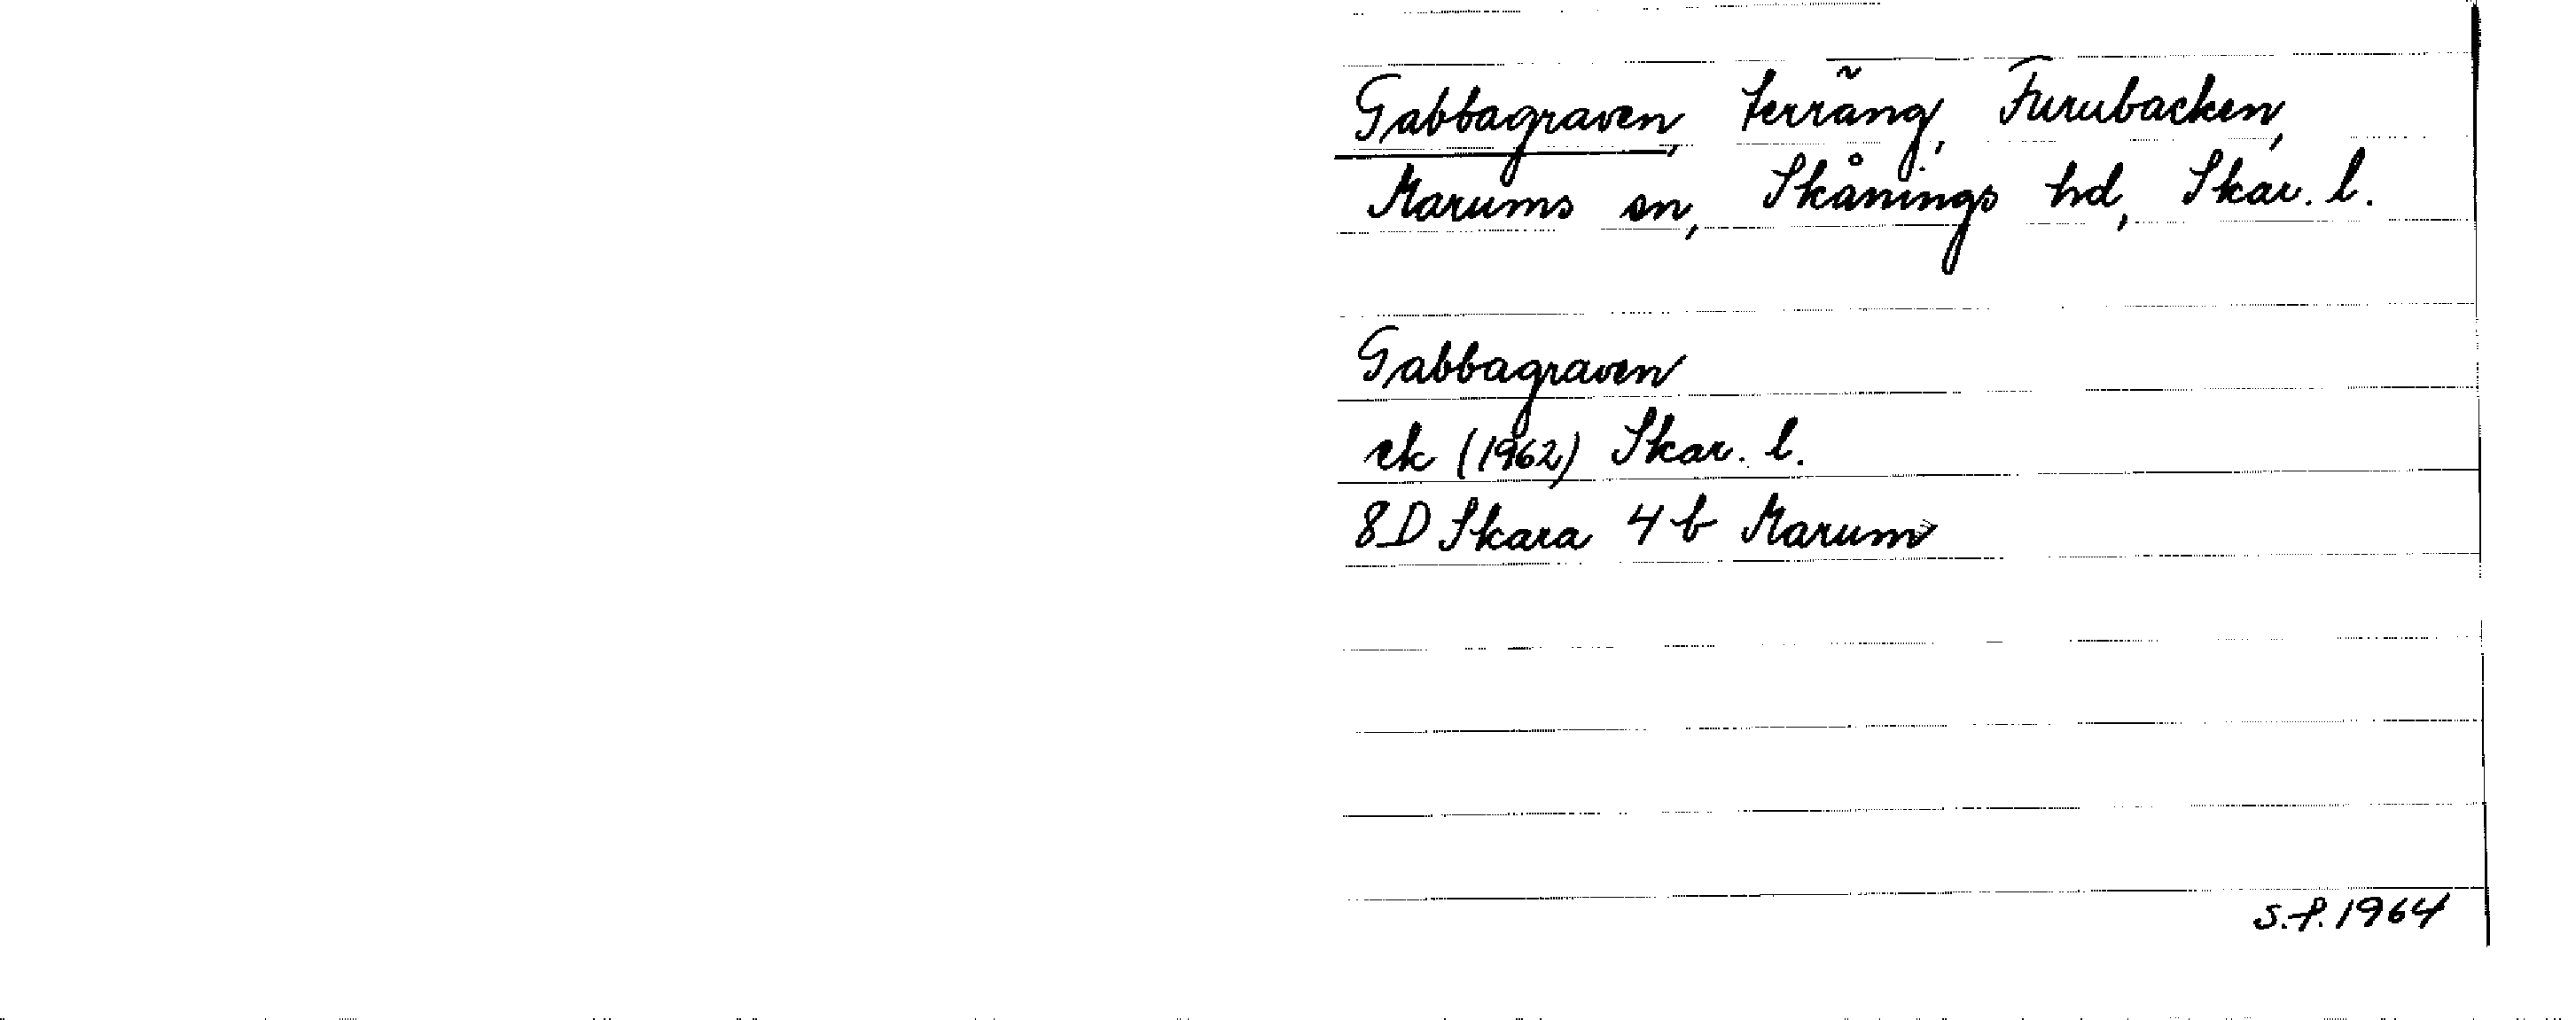 Gabbagraven, terräng, Furubacken,
Marums sn, Skånings hd, Skar. l.
Gabbagraven
ek (1962) Skar. l.
8D Skara 4 b Marum
S.f. 1964